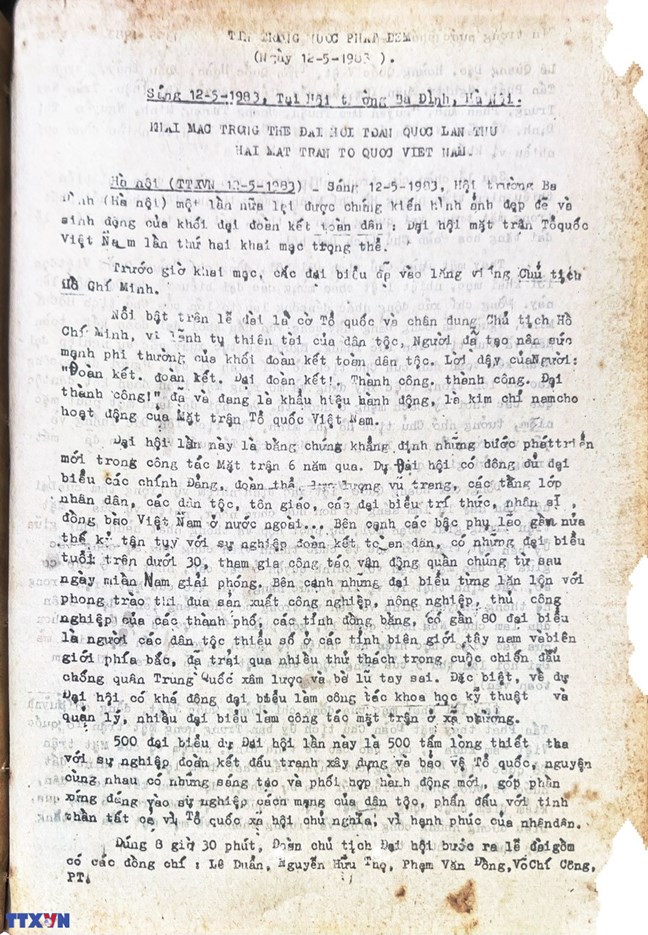 TIN TRONG NƯỚC PHÁT ĐÊM
(Ngày 12-5-1983 ).
Sáng 12-5-1983, Tại Hội trường Ba Đình, Hà Nội.
KHAI MẠC TRỌNG THỂ ĐẠI HỘI TOÀN QUỐC LẦN THỨ
HAI MẶT TRẬN TỔ QUỐC VIỆT NAM.
Hà nội (TTXVN 12-5-1983) - Sáng 12-5-1983, Hội trường Ba
Đình (Hà nội) một lần nữa lại được chứng kiến hình ảnh đẹp đẽ và
sinh động của khối đại đoàn kết toàn dân : Đại hội mặt trận Tổquốc
Việt Nam lần thứ hai khai mạc trọng thể.
Trước giờ khai mạc, các đại biểu đã vào lăng viếng Chủ tịch
Hồ Chí Minh.
Nổi bật trên lễ đài là cờ Tổ quốc và chân dung Chủ tịch Hồ
Chí Minh, vị lãnh tụ thiên tài của dân tộc, Người đã tạo nên sức
mạnh phi thường của khối đoàn kết toàn dân tộc. Lời dậy củaNgười:
"Đoàn kết. đoàn kết. Đại đoàn kết!. Thành công. thành công. Đại
thành công!" đã và đang là khẩu hiệu hành động, là kim chỉ namcho
hoạt động của Mặt trận Tổ quốc Việt Nam.
Đại hội lần này là bằng chứng khẳng định những bước pháttriển
mới trong công tác Mặt trận 6 năm qua. Dự Đại hội có đông đủ đại
biểu các chính Đảng, đoàn thể, lực lượng vũ trang, các tầng lớp
nhân dân, các dân tộc, tôn giáo, các đại biểu trí thức, nhân sĩ ,
đồng bào Việt Nam ở nước ngoài... Bên cạnh các bậc phụ lão gần nửa
thế kỉ tận tụy với sự nghiệp đoàn kết toàn dân, có những đại biểu
tuổi trên dưới 30, tham gia công tác vận động quần chúng từ sau
ngày miền Nam giải phóng. Bên cạnh những đại biểu từng lăn lộn với
phong trào thi đua sản xuất công nghiệp, nông nghiệp, thủ công
nghiệp của các thành phố, các tỉnh đồng bằng, có gần 80 đại biểu
là người các dân tộc thiểu số ở các tỉnh biên giới tây nam vàbiên
giới phía bắc, đã trải qua nhiều thử thách trong cuộc chiến đấu
chống quân Trung Quốc xâm lược và bè lũ tay sai. Đặc biệt, về dự
Đại hội, có khá động đại biểu làm công tác khoa học kỹ thuật và
quản lý, nhiều đại biểu làm công tác mặt trận ở xã phường.
500 đại biểu dự Đại hội lần này là 500 tấm lòng thiết tha
với sự nghiệp đoàn kết đấu tranh xây dựng và bảo vệ Tổ quốc, nguyện
cùng nhau có những sáng tạo và phối hợp hành động mới, góp phần
xứng đáng vào sự nghiệp cách mạng của dân tộc, phấn đấu với tinh
thần tất cả vì Tổ quốc xã hội chủ nghĩa, vì hạnh phúc của nhândân.
Đúng 8 giờ 30 phút, Đoàn chủ tịch Đại hội bước ra lễ đàigồm
có các đồng chí : Lê Duẩn, Nguyễn Hữu Thọ, Phạm Văn Đồng,Võ Chí Công,
PT.
TTXVN